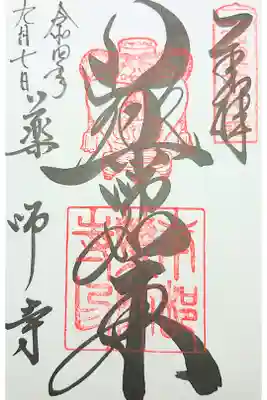 奉拝
薬師如来
令和四年
九月七日
薬師寺